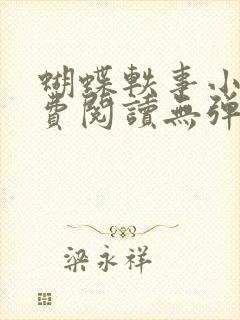 蝴蝶軼事小
費閱讀無彈
梁永祥